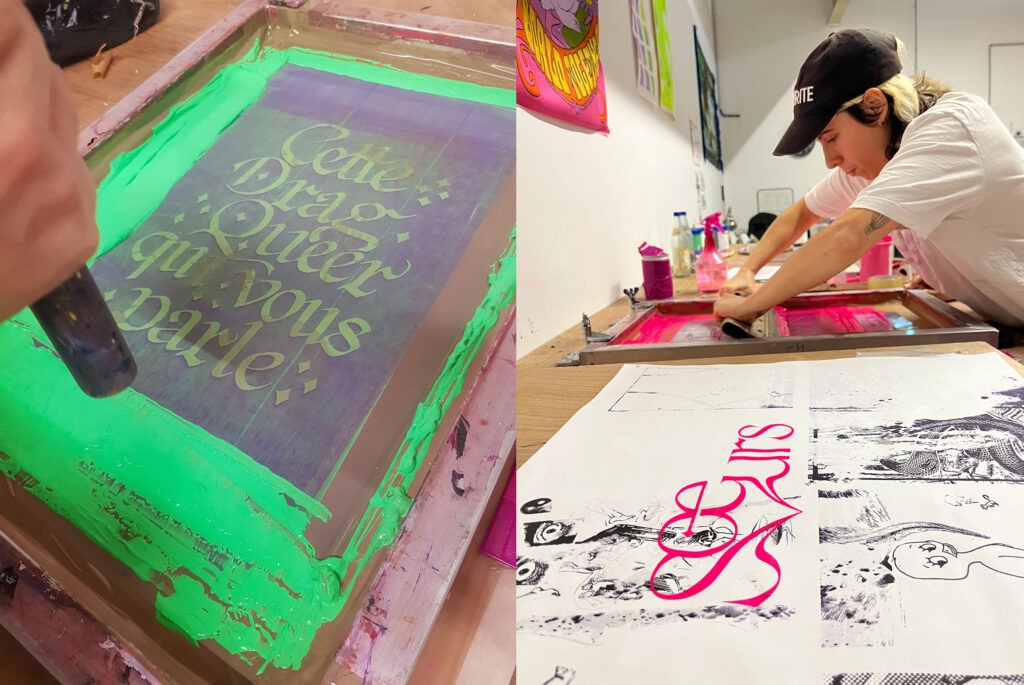 Cette
Drag
Queer
qui vous
parle
RITE
Sœurs